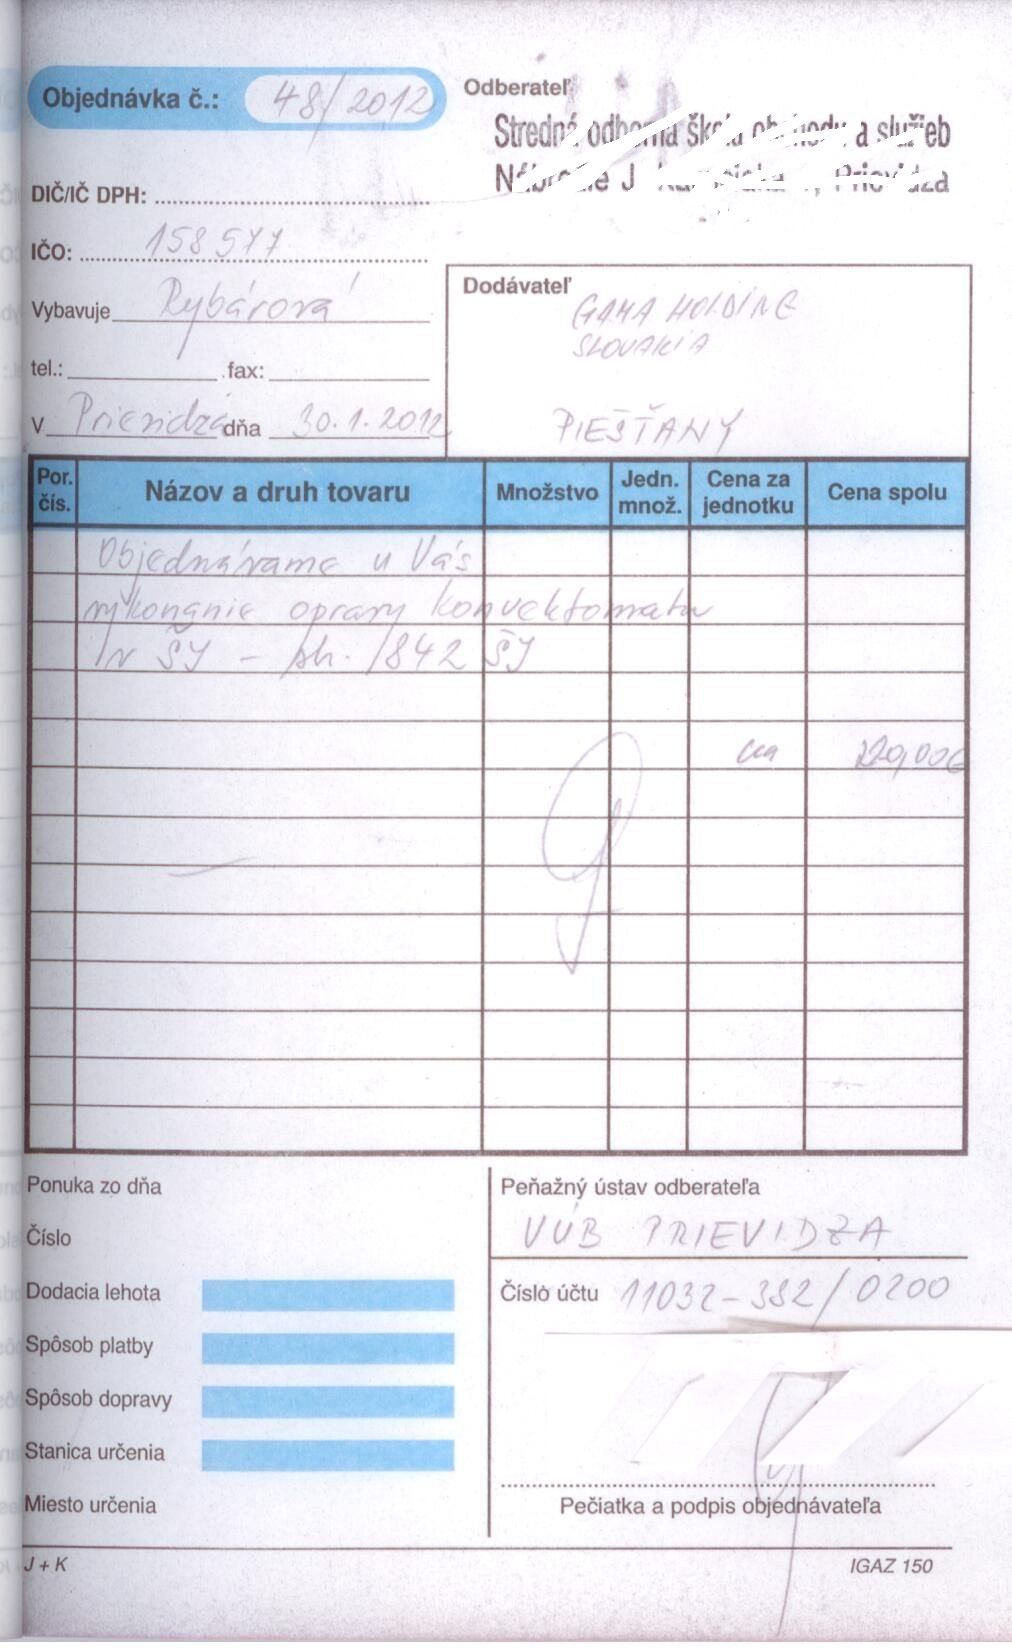 Objednávka č.: 48/2012
Odberateľ
Stredná odborná škola obchodu a služieb
Nábrežie J. Prievidza
DIČ/IČ DPH:
IČO: 158577
Vybavuje Rybárová
tel.: fax:
V Prievidza dňa 30.1.2012
Dodávateľ
GAMA HOLDING
SLOVAKIA
PIEŠŤANY
Por. čís. Názov a druh tovaru Množstvo Jedn. množ. Cena za jednotku Cena spolu
Objednávame u Vás
vykonanie opravy konvektomatu
v ŠJ - 1842 ŠJ
Ponuka zo dňa
Číslo
Dodacia lehota
Spôsob platby
Spôsob dopravy
Stanica určenia
Miesto určenia
Peňažný ústav odberateľa
VÚB PRIEVIDZA
Číslo účtu 11032-382/0200
Pečiatka a podpis objednávateľa
J + K
IGAZ 150